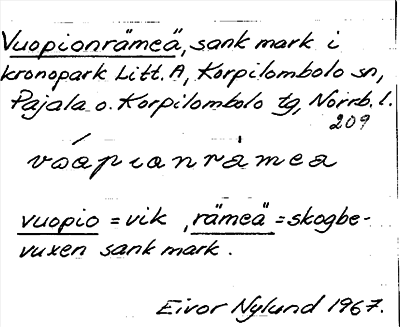 Vuopionrämeä, sank mark i
kronopark Litt. A, Korpilombolo sn,
Pajala o. Korpilombolo tg, Norrb. l.
209
vóapıanrȧmea
vuopio = vik, rämeä = skogbe-
vuxen sank mark.
Eivor Nylund 1967.